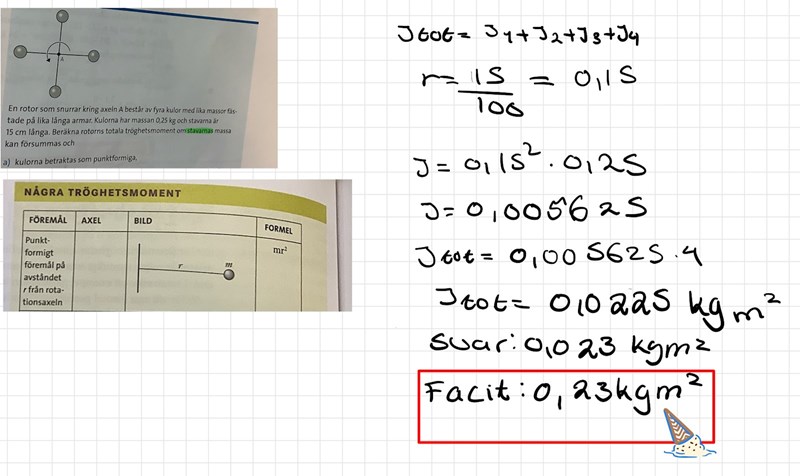 A
En rotor som snurrar kring axeln A består av fyra kulor med lika massor fäs-
tade på lika långa armar. Kulorna har massan 0,25 kg och stavarna är
15 cm långa. Beräkna rotorns totala tröghetsmoment om stavarnas massa
kan försummas och
a) kulorna betraktas som punktformiga.
NÅGRA TRÖGHETSMOMENT
FÖREMÅL AXEL BILD FORMEL
Punkt-
formigt
föremål på
avståndet
r från rota-
tionsaxeln
r m
mr²
Jtot = J1+J2+J3+J4
r = 15/100 = 0,15
J = 0,15² · 0,25
J = 0,005625
Jtot = 0,005625 · 4
Jtot = 0,0225 kgm²
svar: 0,023 kgm²
Facit: 0,23kgm²